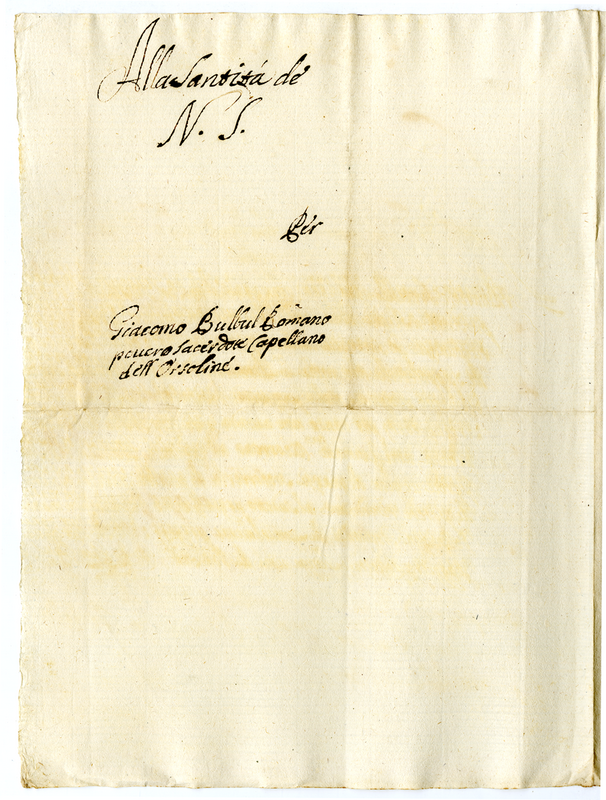 Alla Santità de
N. S.
Per
Giacomo Bulbul Romano
povero Sacerdote Capellano
dell Orsoline.